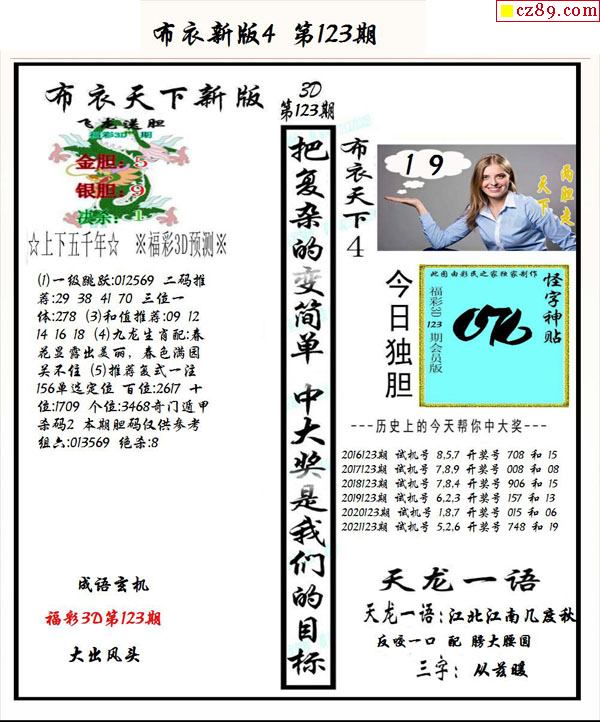 cz89.com
布衣新版4 第123期
布衣天下新版
飞龙送胆
福彩3D 期
金胆:5
银胆:9
决杀:1
☆上下五千年☆ ※福彩3D预测※
(1)一级跳跃:012569 二码推
荐:29 38 41 70 三位一
体:278 (3)和值推荐:09 12
14 16 18 (4)九龙生肖配:春
花显露出美丽，春色满园
关不住 (5)推荐复式一注
156单选定位 百位:2617 十
位:1709 个位:3468奇门遁甲
杀码2 本期胆码仅供参考
组六:013569 绝杀:8
成语玄机
福彩3D第123期
大出风头
3D
第123期
把复杂的变简单 中大奖是我们的目标
布衣天下4
19
两胆走
天下
今日独胆
此图由彩民之家独家制作
福彩3D 123 期会员版
076
怪字神贴
---历史上的今天帮你中大奖---
2016123期 试机号 8.5.7 开奖号 708 和 15
2017123期 试机号 7.8.9 开奖号 008 和 08
2018123期 试机号 7.8.4 开奖号 906 和 15
2019123期 试机号 6.2.3 开奖号 157 和 13
2020123期 试机号 1.8.7 开奖号 015 和 06
2021123期 试机号 5.2.6 开奖号 748 和 19
天龙一语
天龙一语:江北江南几度秋
反咬一口 配 膀大腰圆
三字: 从兹暖